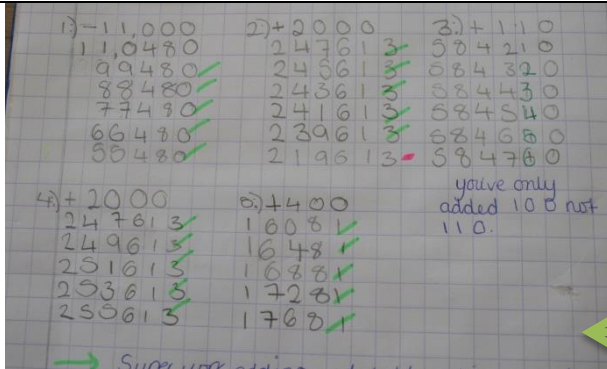 1.) - 11,000
110480
99480
88480
77480
66480
55480
2.) + 2000
247613
245613
243613
241613
239613
219613
3.) + 110
584210
584320
584430
584540
584650
584760
you've only
added 100 not
110.
4.) + 2000
247613
249613
251613
253613
255613
5.) + 400
16081
16481
16881
17281
17681
Super work adding